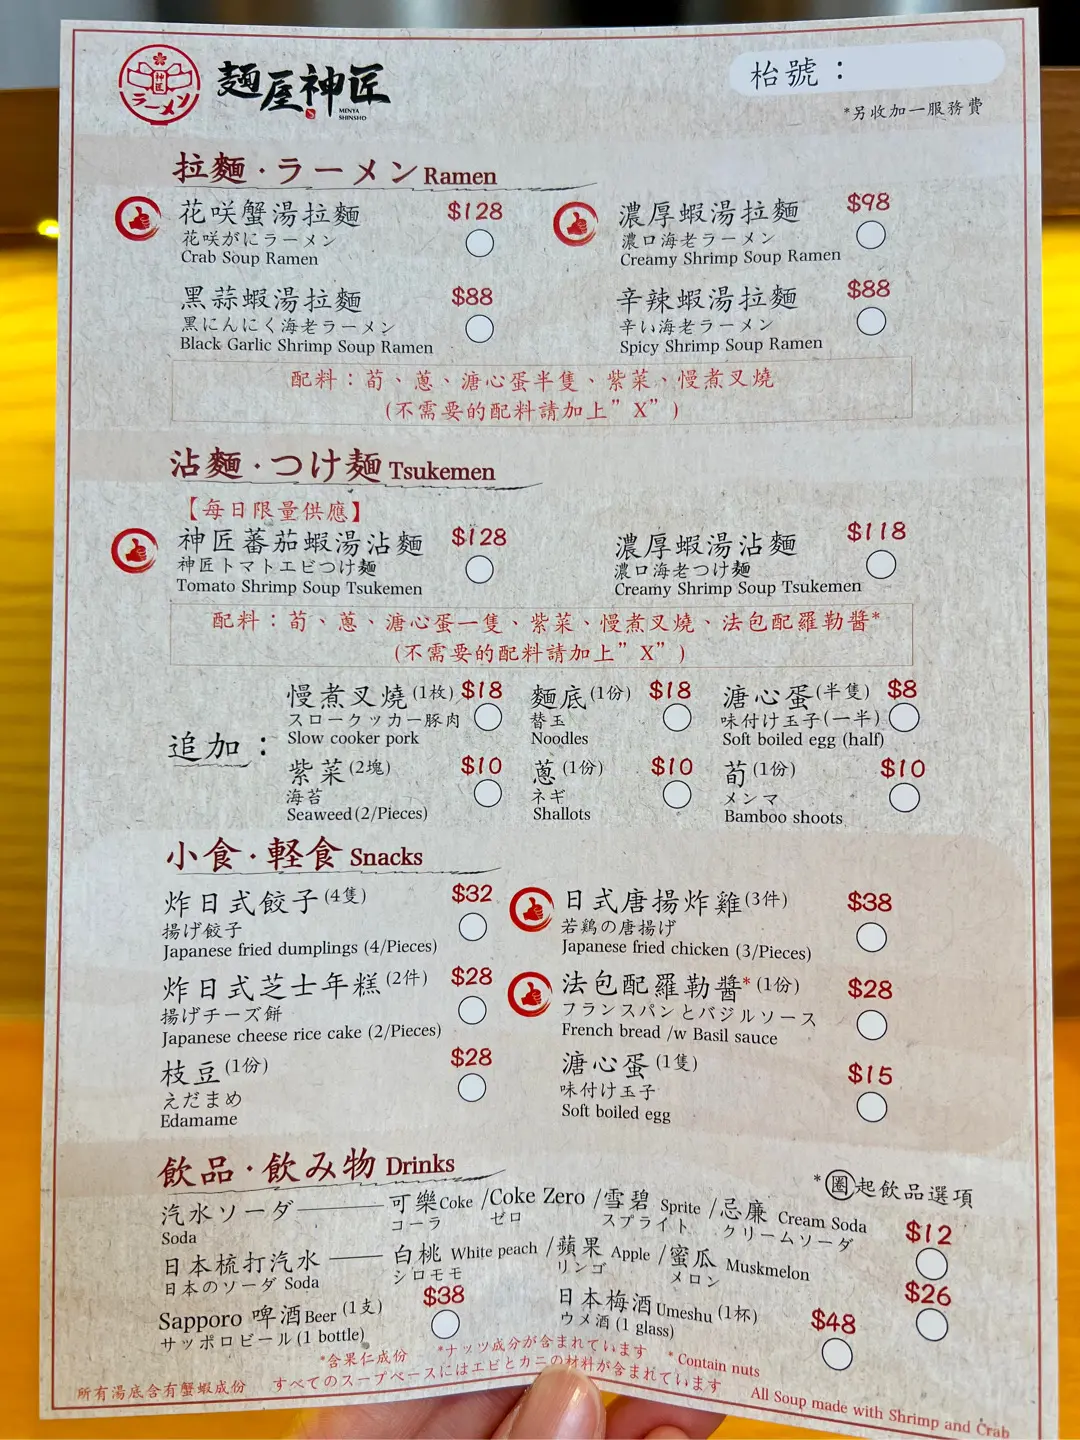 神匠
ラーメン
麵屋神匠
MENYA
SHINSHO
枱號：
*另收加一服務費
拉麵·ラーメン Ramen
花咲蟹湯拉麵 $128
花咲がにラーメン
Crab Soup Ramen
濃厚蝦湯拉麵 $98
濃口海老ラーメン
Creamy Shrimp Soup Ramen
黑蒜蝦湯拉麵 $88
黒にんにく海老ラーメン
Black Garlic Shrimp Soup Ramen
辛辣蝦湯拉麵 $88
辛い海老ラーメン
Spicy Shrimp Soup Ramen
配料：荀、蔥、溏心蛋半隻、紫菜、慢煮叉燒
(不需要的配料請加上”X”)
沾麵·つけ麵 Tsukemen
【每日限量供應】
神匠蕃茄蝦湯沾麵 $128
神匠トマトエビつけ麵
Tomato Shrimp Soup Tsukemen
濃厚蝦湯沾麵 $118
濃口海老つけ麵
Creamy Shrimp Soup Tsukemen
配料：荀、蔥、溏心蛋一隻、紫菜、慢煮叉燒、法包配羅勒醬*
(不需要的配料請加上”X”)
追加：
慢煮叉燒(1枚) $18
スロークッカー豚肉
Slow cooker pork
麵底(1份) $18
替玉
Noodles
溏心蛋(半隻) $8
味付け玉子(一半)
Soft boiled egg (half)
紫菜(2塊) $10
海苔
Seaweed(2/Pieces)
蔥(1份) $10
ネギ
Shallots
荀(1份) $10
メンマ
Bamboo shoots
小食·軽食 Snacks
炸日式餃子(4隻) $32
揚げ餃子
Japanese fried dumplings (4/Pieces)
日式唐揚炸雞(3件) $38
若鶏の唐揚げ
Japanese fried chicken (3/Pieces)
炸日式芝士年糕(2件) $28
揚げチーズ餅
Japanese cheese rice cake (2/Pieces)
法包配羅勒醬*(1份) $28
フランスパンとバジルソース
French bread /w Basil sauce
枝豆(1份) $28
えだまめ
Edamame
溏心蛋(1隻) $15
味付け玉子
Soft boiled egg
飲品·飲み物 Drinks
*圈起飲品選項
汽水ソーダ 可樂Coke /Coke Zero /雪碧 Sprite /忌廉 Cream Soda $12
Soda コーラ ゼロ スプライト クリームソーダ
日本梳打汽水 白桃 White peach /蘋果 Apple /蜜瓜 Muskmelon $26
日本のソーダ Soda シロモモ リンゴ メロン
Sapporo 啤酒Beer(1支) $38
サッポロビール(1 bottle)
日本梅酒Umeshu(1杯) $48
ウメ酒(1 glass)
*含果仁成份 *ナッツ成分が含まれています *Contain nuts
所有湯底含有蟹蝦成份 すべてのスープベースにはエビとカニの材料が含まれています All Soup made with Shrimp and Crab